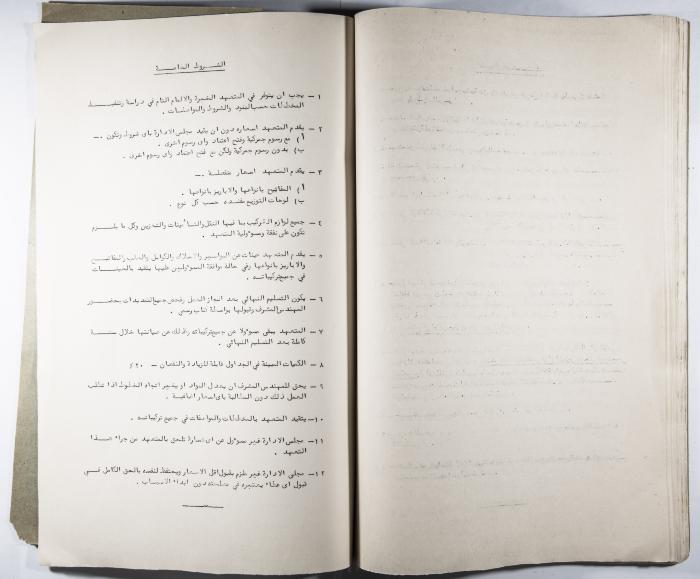 الشروط العامة
١ – يجب ان يتوفر في المتعهد الخبرة والالمام التام في دراسة وتنفيذ
المخططات حسب البنود والشروط والمواصفات .
٢ – يقدم المتعهد اسعاره دون ان يقيد مجلس الادارة باى شروط وتكون .–
أ) مع رسوم جمركية وفتح اعتماد واى رسوم اخرى .
ب) بدون رسوم جمركية ولكن مع فتح اعتماد واى رسوم اخرى .
٣ – يقدم المتعهد اسعار منفصلة .–
أ) المفاتيح بانواعها والاباريز بانواعها .
ب) لوحات التوزيع منفصلة حسب كل نوع .
٤ – جميع لوازم التركيب بما فيها النقل والتأمينات والتخزين وكل ما يلزم
تكون على نفقة ومسؤولية المتعهد .
٥ – يقدم المتعهد عينات عن المواسير والاسلاك والكوابل والعلب والمفاتيح
والاباريز بانواعها وفي حالة موافقة المسؤولين عليها يتقيد بالعينات
في جميع تركيباته .
٦ – يكون التسليم النهائي بعد انجاز العمل وفحص جميع التمديدات بحضور
المهندس المشرف وقبولها برسالة كتاب رسمي .
٧ – المتعهد يبقى مسؤولا عن جميع تركيباته وكذلك عن صيانتها خلال سنة
كاملة بعد التسليم النهائي .
٨ – الكميات المبينة في الجداول قابلة للزيادة والنقصان – ٢٠٪
٩ – يحق للمهندس المشرف ان يعدل المواد او يغير اتجاه الخطوط اذا تطلب
العمل ذلك دون المطالبة باى اسعار اضافية .
١٠– يتقيد المتعهد بالمخططات والمواصفات في جميع تركيباته .
١١– مجلس الادارة غير مسؤول عن اى خسارة تلحق بالمتعهد من جراء هذا
التعهد .
١٢– مجلس الادارة غير ملزم بقبول اقل الاسعار ويحتفظ لنفسه بالحق الكامل في
قبول اى عطاء يعتبره في مصلحته دون ابداء الاسباب .